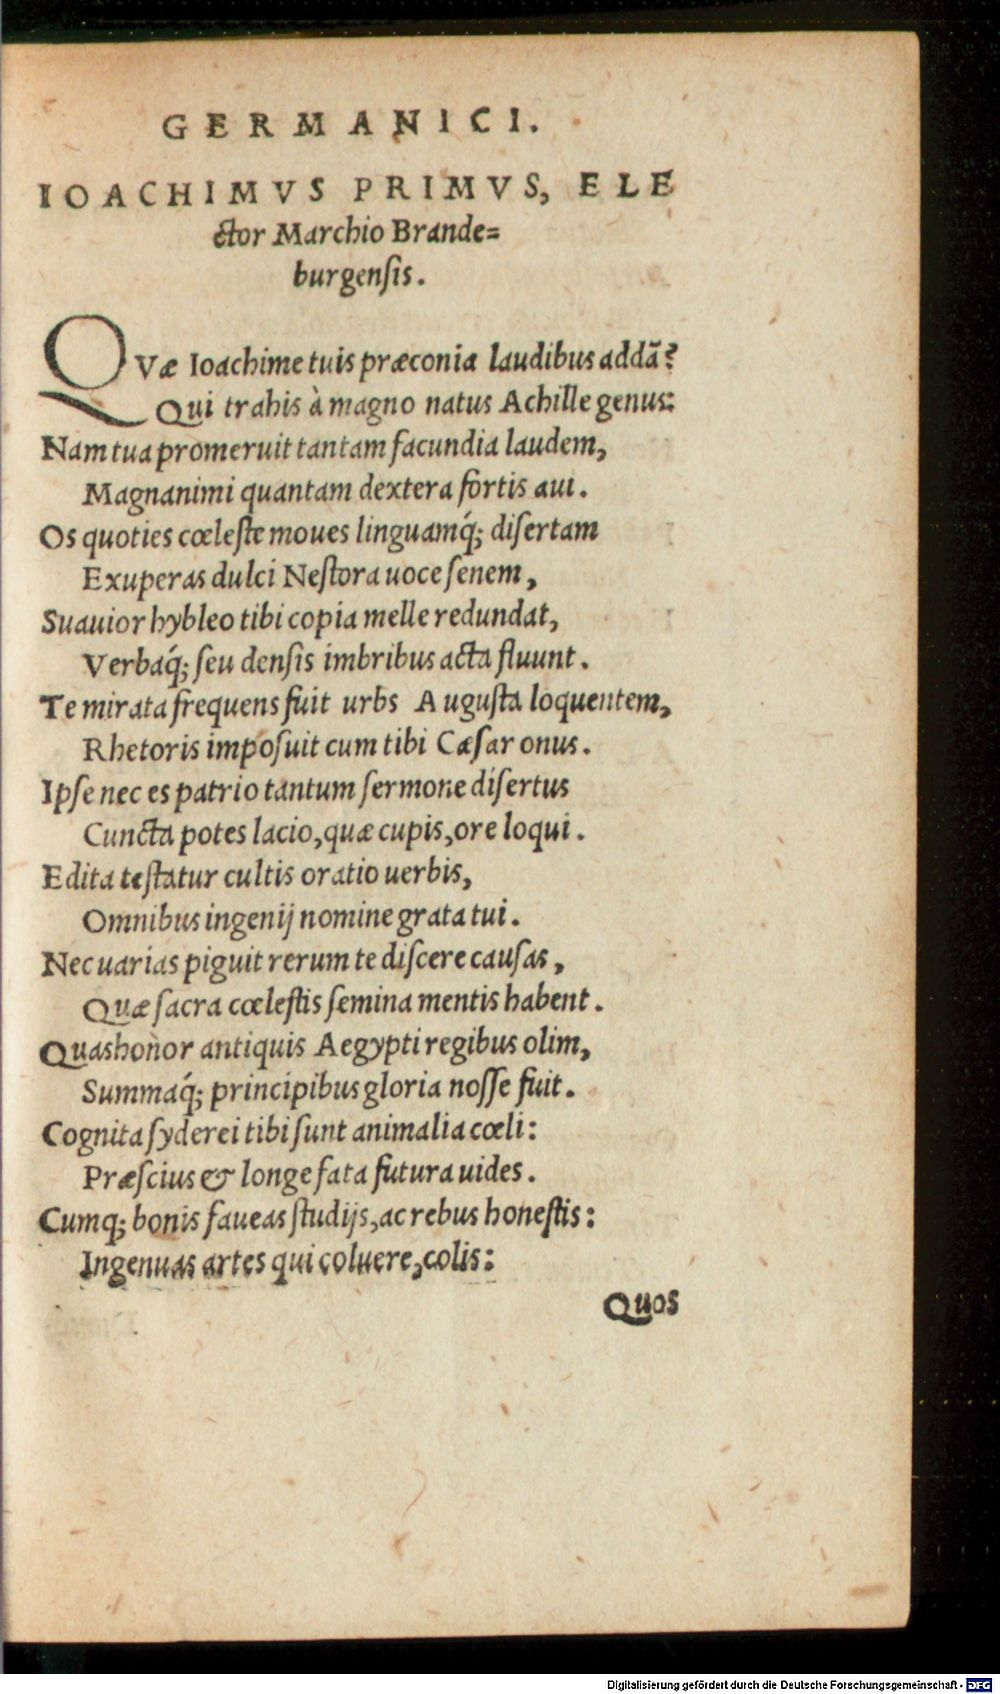 GERMANICI.
IOACHIMVS PRIMVS, ELE
ctor Marchio Brande=
burgensis.
QVæ Ioachime tuis præconia laudibus addā?
Qui trahis à magno natus Achille genus:
Nam tua promeruit tantam facundia laudem,
Magnanimi quantam dextera fortis aui.
Os quoties cœleste moues linguamq́; disertam
Exuperas dulci Nestora uoce senem,
Suauior hybleo tibi copia melle redundat,
Verbaq́; seu densis imbribus acta fluunt.
Te mirata frequens fuit urbs Augusta loquentem,
Rhetoris imposuit cum tibi Cæsar onus.
Ipse nec es patrio tantum sermone disertus
Cuncta potes lacio, quæ cupis, ore loqui.
Edita testatur cultis oratio uerbis,
Omnibus ingenij nomine grata tui.
Nec uarias piguit rerum te discere causas,
Quæ sacra cœlestis semina mentis habent.
Quas honor antiquis Aegypti regibus olim,
Summaq́; principibus gloria nosse fuit.
Cognita syderei tibi sunt animalia cœli:
Præscius & longe fata futura uides.
Cumq; bonis faueas studijs, ac rebus honestis:
Ingenuas artes qui coluere, colis:
Quos
Digitalisierung gefördert durch die Deutsche Forschungsgemeinschaft - DFG